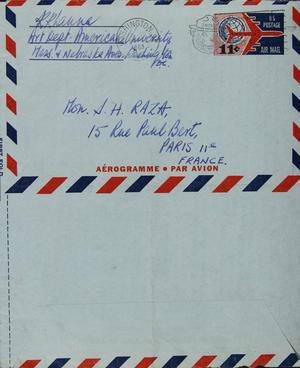 Art Dept. American University
Mass. & Nebraska Aves.
U.S.
POSTAGE
11c
AIR MAIL
Mon. S. H. RAZA,
15 Rue Paul Bert,
PARIS 11e
FRANCE.
AÉROGRAMME • PAR AVION
FIRST FOLD